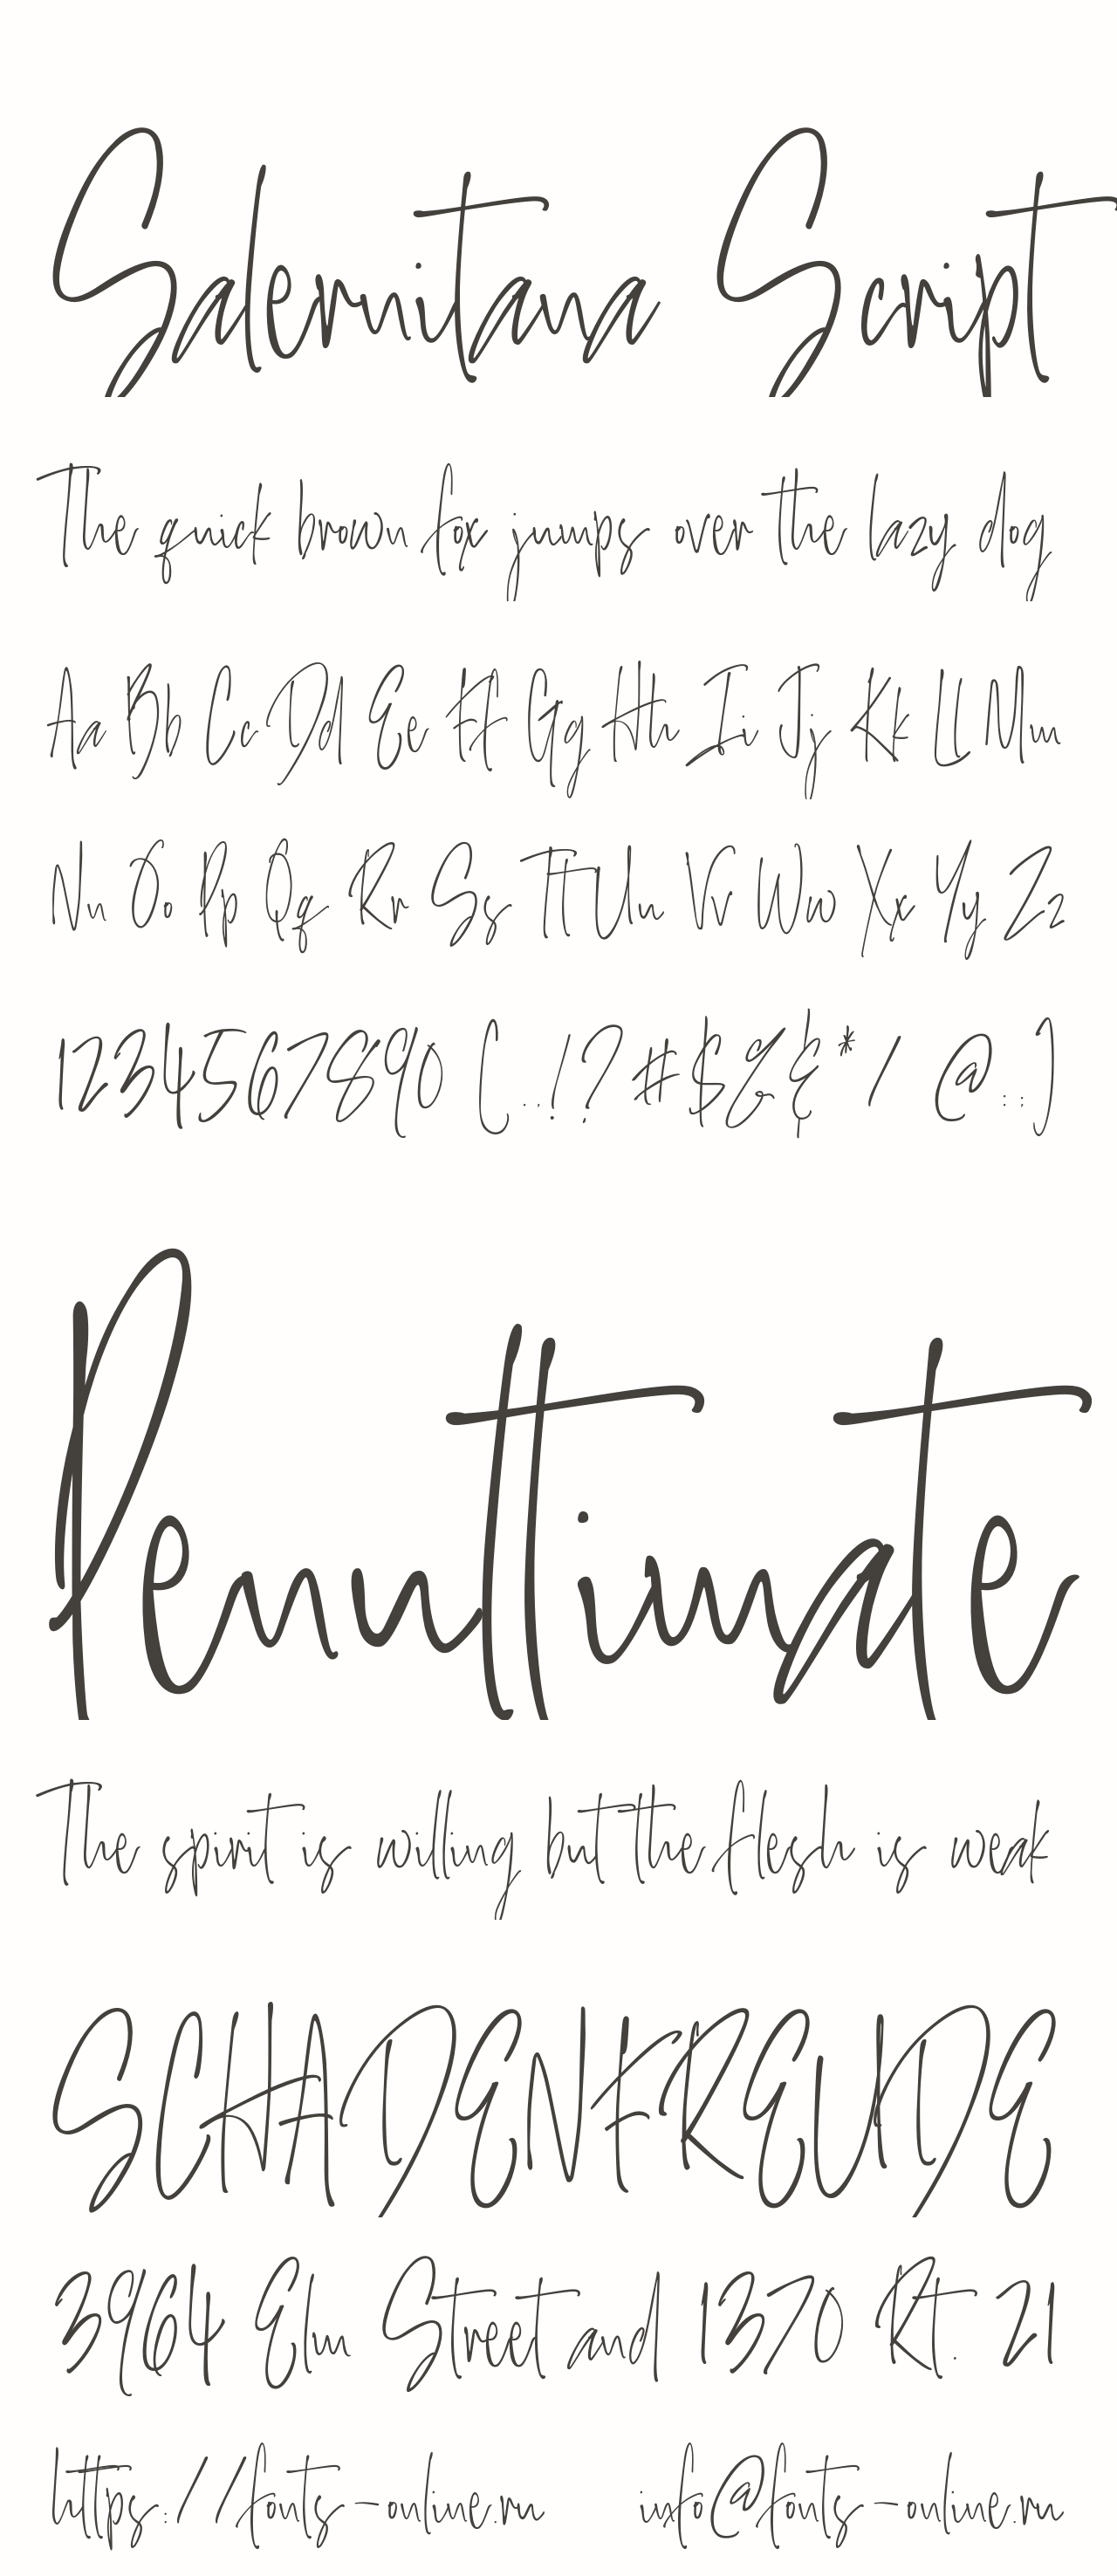 Salernitana Script
The quick brown fox jumps over the lazy dog
Aa Bb Cc Dd Ee Ff Gg Hh Ii Jj Kk Ll Mm
Nn Oo Pp Qq Rr Ss Tt Uu Vv Ww Xx Yy Zz
1234567890 (.,!?#$%&* / @:;)
Penultimate
The spirit is willing but the flesh is weak
SCHADENFREUDE
3964 Elm Street and 1370 Rt. 21
https://fonts-online.ru info@fonts-online.ru